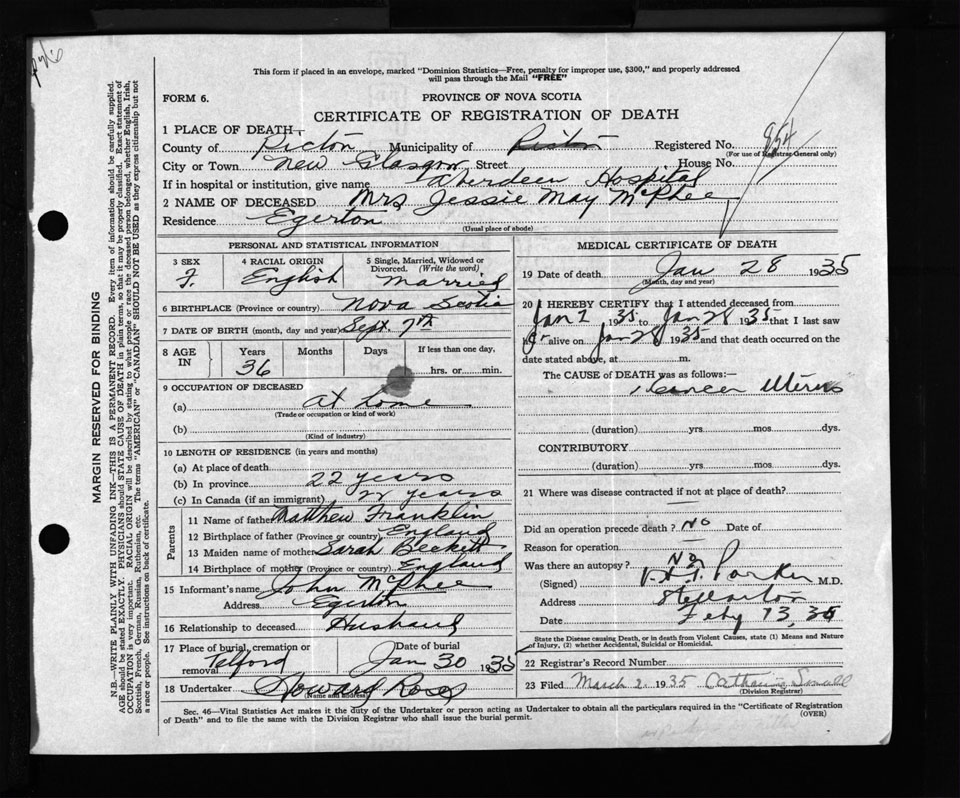 This form if placed in an envelope, marked "Dominion Statistics—Free, penalty for improper use, $300," and properly addressed
will pass through the Mail "FREE"
FORM 6.
PROVINCE OF NOVA SCOTIA
CERTIFICATE OF REGISTRATION OF DEATH
1 PLACE OF DEATH—
County of Pictou Municipality of Pictou Registered No. 954
(For use of Registrar General only)
City or Town New Glasgow Street House No.
If in hospital or institution, give name Aberdeen Hospital
2 NAME OF DECEASED Mrs Jessie May McPhee
Residence Egerton
(Usual place of abode)
PERSONAL AND STATISTICAL INFORMATION
3 SEX 4 RACIAL ORIGIN 5 Single, Married, Widowed or
Divorced. (Write the word)
F. English Married
6 BIRTHPLACE (Province or country) Nova Scotia
7 DATE OF BIRTH (month, day and year) Sept. 7th
8 AGE IN Years Months Days If less than one day,
36 hrs. or min.
9 OCCUPATION OF DECEASED
(a) At home
(Trade or occupation or kind of work)
(b)
(Kind of industry)
10 LENGTH OF RESIDENCE (in years and months)
(a) At place of death
(b) In province 22 years
(c) In Canada (if an immigrant) 22 years
Parents
11 Name of father Matthew Franklin
12 Birthplace of father (Province or country) England
13 Maiden name of mother Sarah Beckett
14 Birthplace of mother (Province or country) England
15 Informant's name John McPhee
Address Egerton
16 Relationship to deceased Husband
17 Place of burial, cremation or Date of burial
removal Telford Jan 30 1935
18 Undertaker Howard Ross
(Name and address)
MEDICAL CERTIFICATE OF DEATH
19 Date of death Jan 28 1935
(Month, day and year)
20 I HEREBY CERTIFY that I attended deceased from
Jan 2 1935 to Jan 28 1935 that I last saw
her alive on Jan 28 1935 and that death occurred on the
date stated above, at m.
The CAUSE of DEATH was as follows:—
Cancer Uterus
(duration) yrs mos dys.
CONTRIBUTORY
(duration) yrs. mos. dys.
21 Where was disease contracted if not at place of death?
Did an operation precede death? No Date of
Reason for operation
Was there an autopsy? No
(Signed) Parker M.D.
Address Stellarton
Date Feby 13, 35
State the Disease causing Death, or in death from Violent Causes, state (1) Means and Nature
of Injury, (2) whether Accidental, Suicidal or Homicidal.
22 Registrar's Record Number
23 Filed March 2 1935 Catharine
(Division Registrar)
Sec. 46—Vital Statistics Act makes it the duty of the Undertaker or person acting as Undertaker to obtain all the particulars required in the "Certificate of Registration
of Death" and to file the same with the Division Registrar who shall issue the burial permit.
(OVER)
MARGIN RESERVED FOR BINDING
N.B.—WRITE PLAINLY WITH UNFADING INK—THIS IS A PERMANENT RECORD. Every item of information should be carefully supplied.
AGE should be stated EXACTLY. PHYSICIANS should STATE CAUSE OF DEATH in plain terms, so that it may be properly classified. Exact statement of
OCCUPATION is very important. RACIAL ORIGIN will be described by stating to what people or race the deceased person belonged, whether English, Irish,
Scottish, French, German, Russian, Ruthenian, etc. The terms "AMERICAN" or "CANADIAN" SHOULD NOT BE USED as they express citizenship but not
a race or people. See instructions on back of certificate.